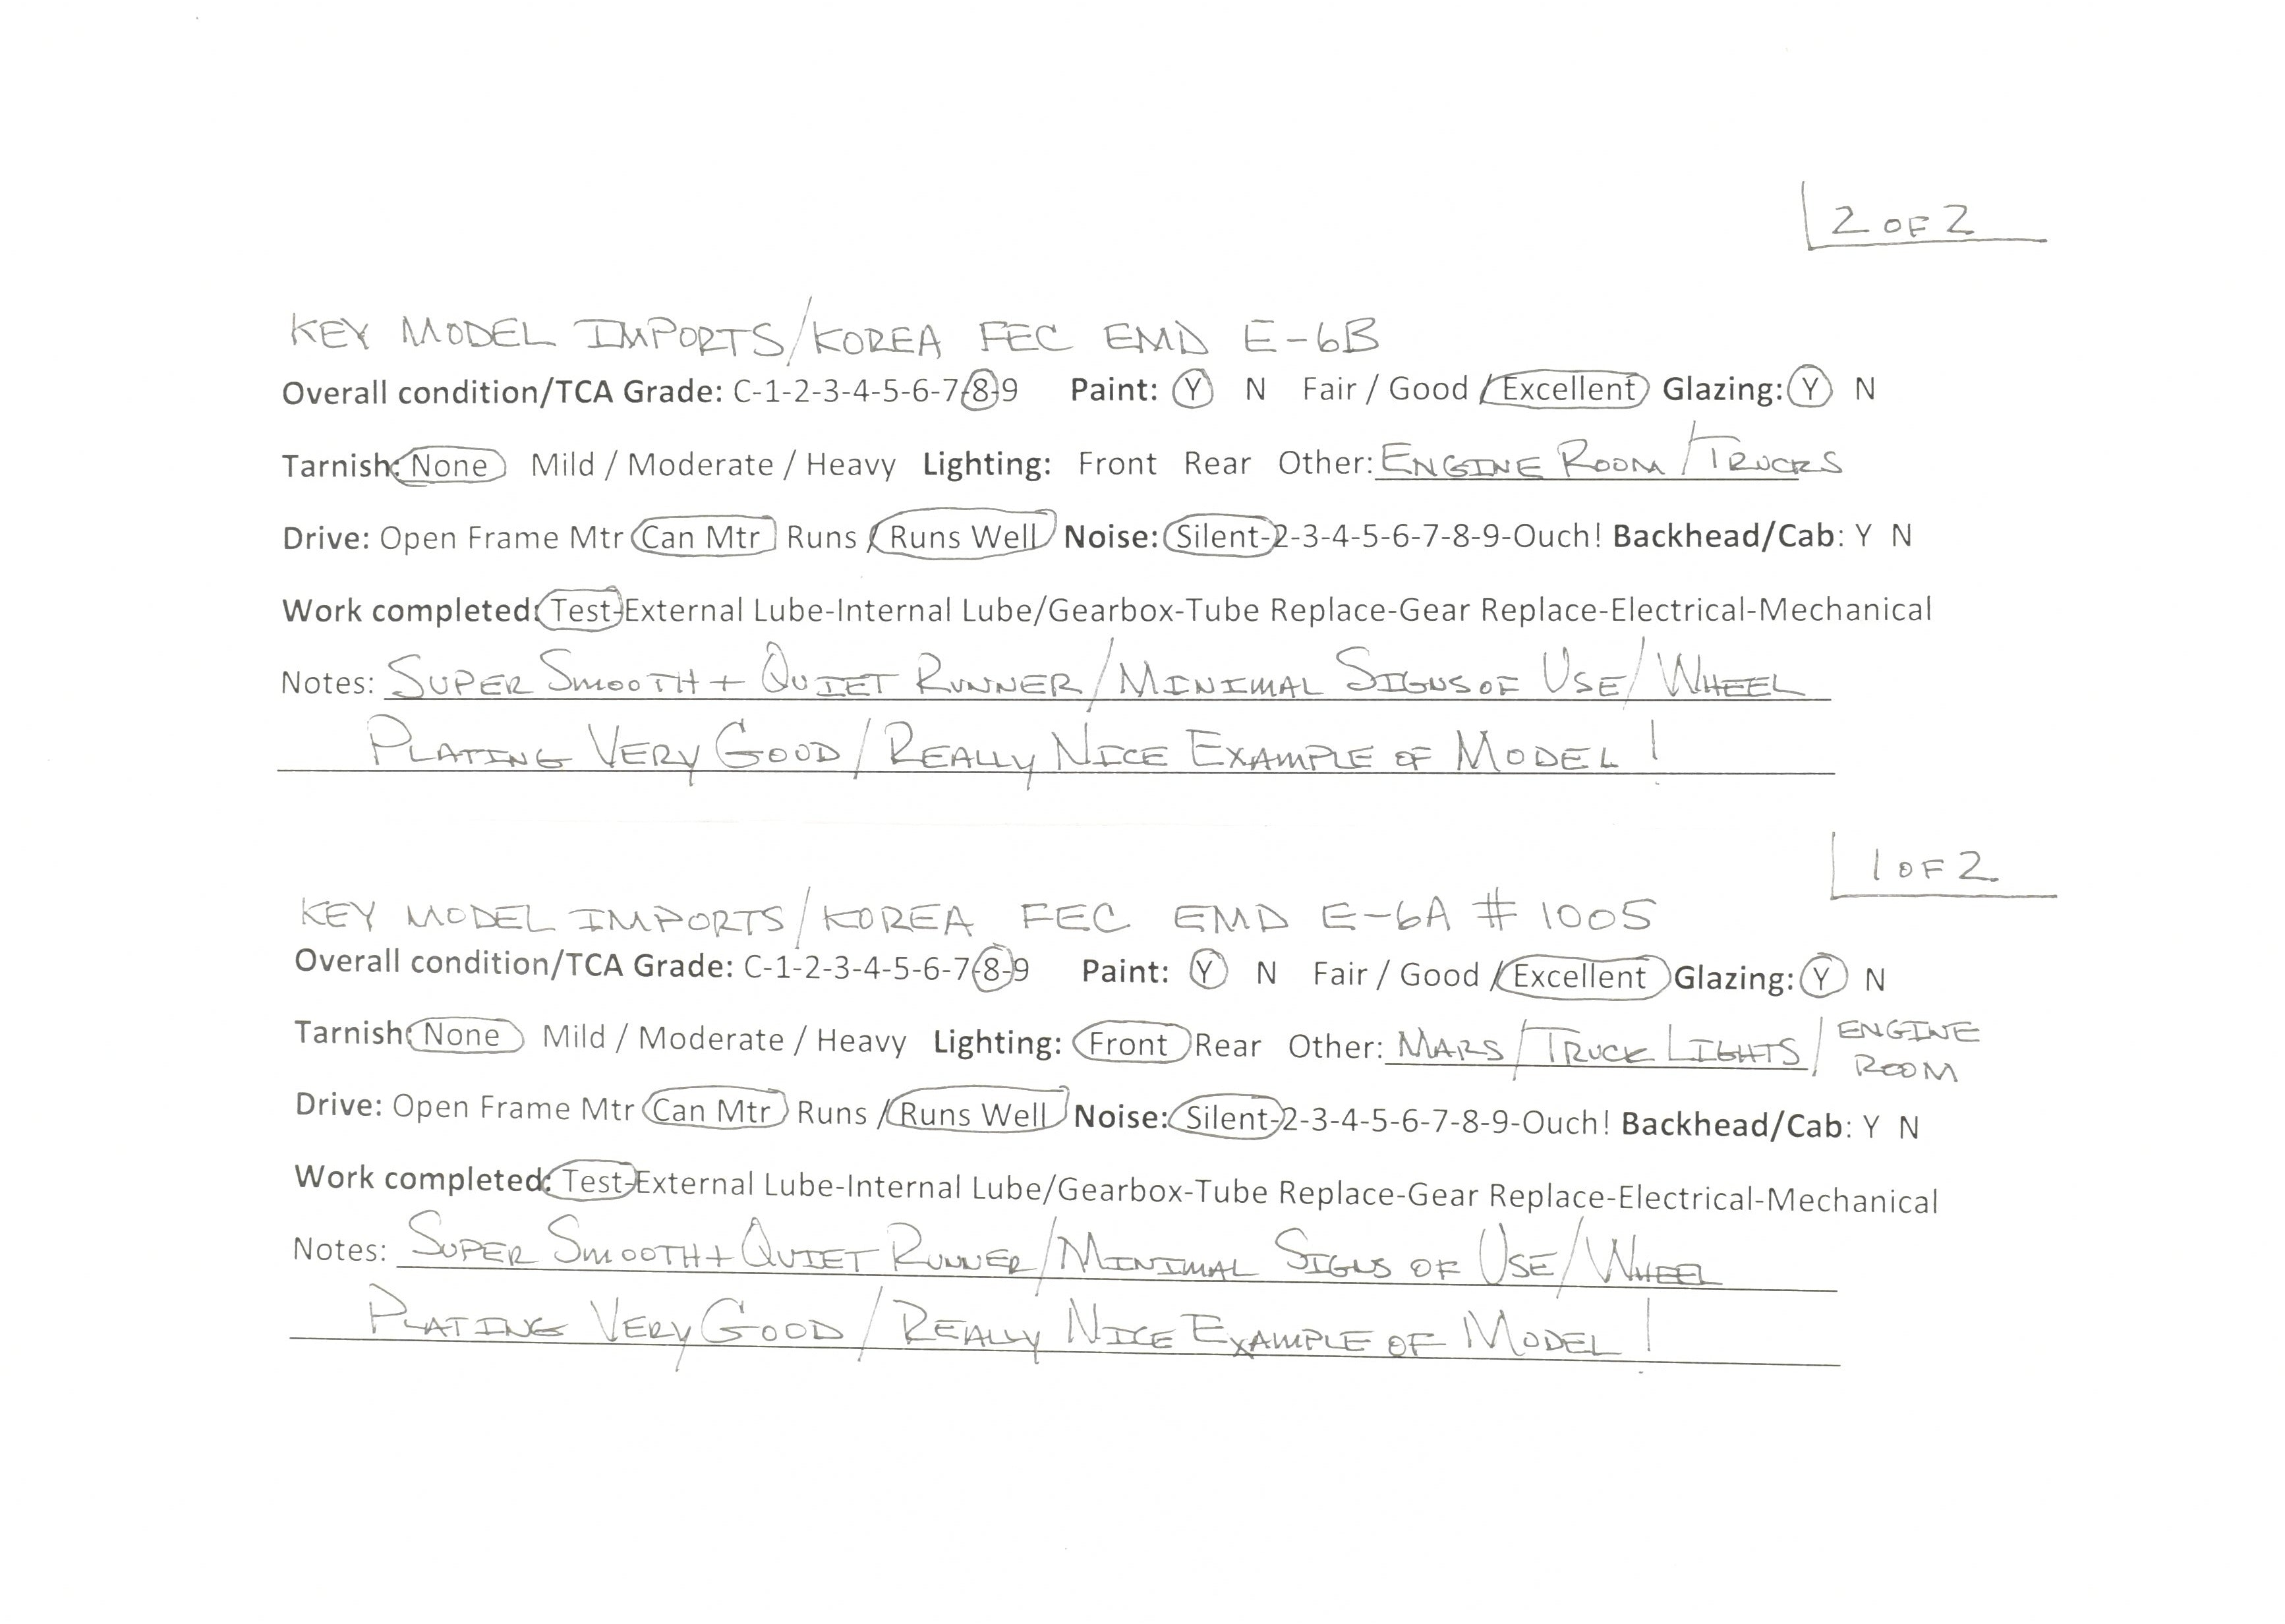 2 OF 2
KEY MODEL IMPORTS/KOREA FEC EMD E-6B
Overall condition/TCA Grade: C-1-2-3-4-5-6-7-8-9 Paint: Y N Fair / Good / Excellent Glazing: Y N
Tarnish: None Mild / Moderate / Heavy Lighting: Front Rear Other: ENGINE ROOM / TRUCKS
Drive: Open Frame Mtr Can Mtr Runs / Runs Well Noise: Silent-2-3-4-5-6-7-8-9-Ouch! Backhead/Cab: Y N
Work completed: Test-External Lube-Internal Lube/Gearbox-Tube Replace-Gear Replace-Electrical-Mechanical
Notes: SUPER SMOOTH + QUIET RUNNER/MINIMAL SIGNS OF USE/WHEEL
PLATING VERY GOOD/REALLY NICE EXAMPLE OF MODEL!
1 OF 2
KEY MODEL IMPORTS/KOREA FEC EMD E-6A # 1005
Overall condition/TCA Grade: C-1-2-3-4-5-6-7-8-9 Paint: Y N Fair / Good / Excellent Glazing: Y N
Tarnish: None Mild / Moderate / Heavy Lighting: Front Rear Other: MARS/TRUCK LIGHTS/ENGINE ROOM
Drive: Open Frame Mtr Can Mtr Runs / Runs Well Noise: Silent-2-3-4-5-6-7-8-9-Ouch! Backhead/Cab: Y N
Work completed: Test-External Lube-Internal Lube/Gearbox-Tube Replace-Gear Replace-Electrical-Mechanical
Notes: SUPER SMOOTH + QUIET RUNNER/MINIMAL SIGNS OF USE/WHEEL
PLATING VERY GOOD/REALLY NICE EXAMPLE OF MODEL!